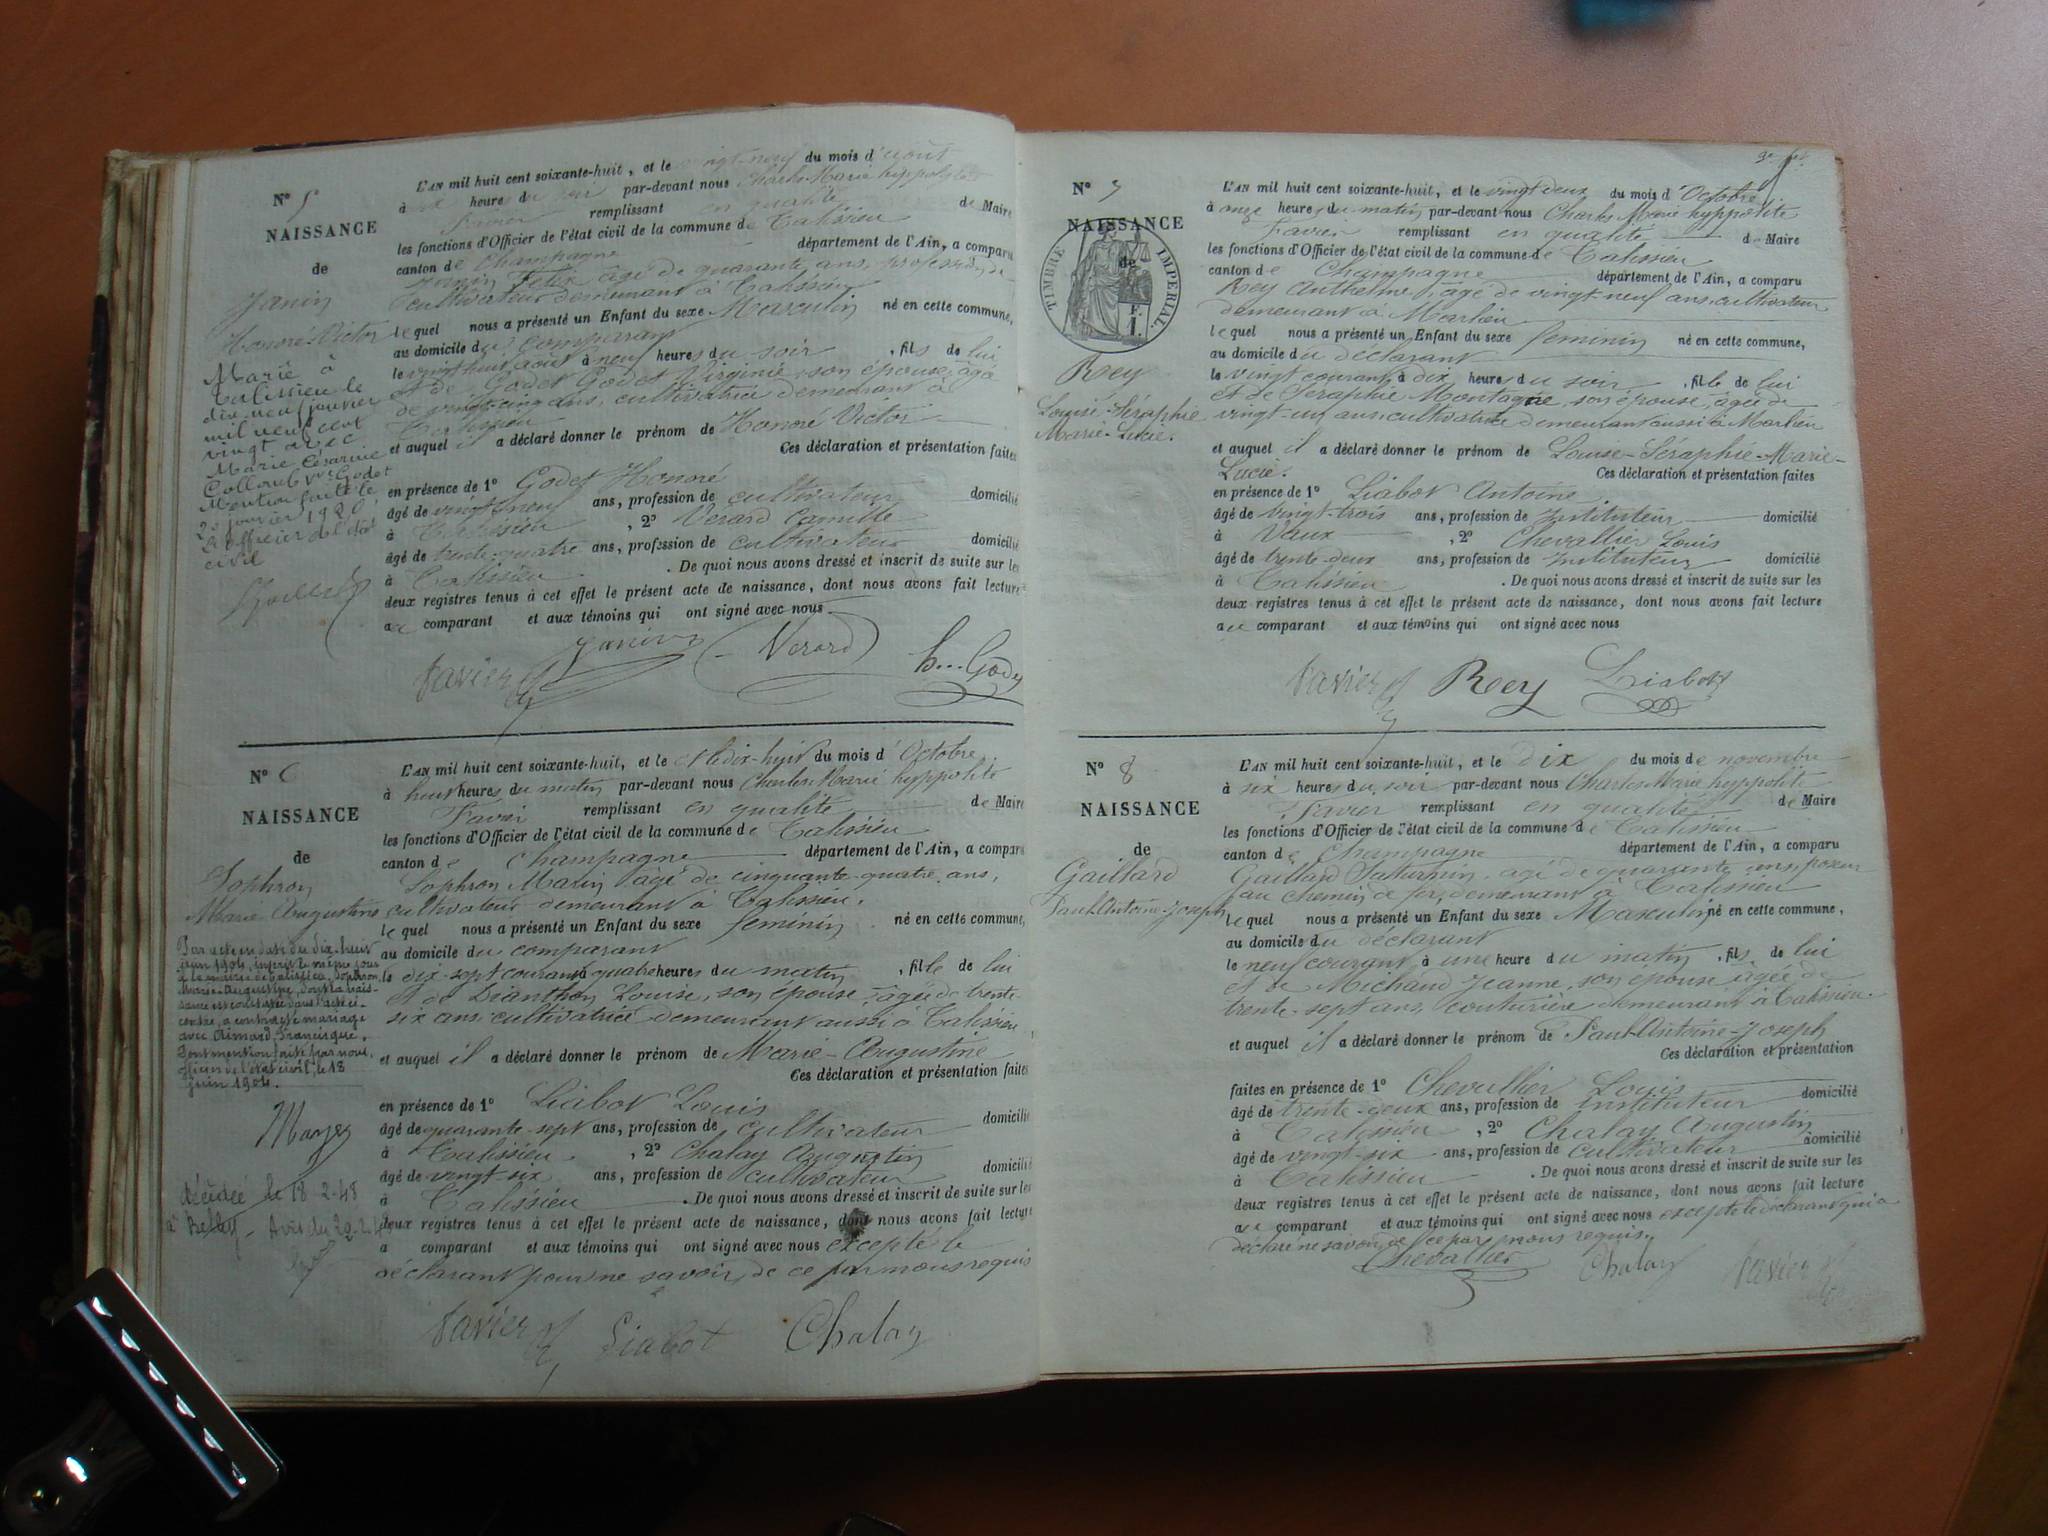 N° 5
NAISSANCE
de
Janin
Honoré Victor
Marié à
Talissieu le
dix neuf janvier
mil neuf cent
vingt avec
Marie Césarine
Colloub Vve Godet
Mention faite le
20 janvier 1920
L'officier de l'état
civil
L'AN mil huit cent soixante-huit, et le vingt-neuf du mois d'août
à heure du soir par-devant nous Charles Marie hyppolyte
Favier remplissant en qualité de Maire
les fonctions d'Officier de l'état civil de la commune de Talissieu
canton de Champagne département de l'Ain, a comparu
Janin Felix âgé de quarante ans, profession de
cultivateur demeurant à Talissieu
lequel nous a présenté un Enfant du sexe Masculin né en cette commune,
au domicile du comparant
le vingt huit août à neuf heures du soir , fils de lui
et de Godet Godet Virginie son épouse, âgé
de vingt cinq ans, cultivatrice demeurant à
Talissieu
et auquel il a déclaré donner le prénom de Honoré Victor
Ces déclaration et présentation faites
en présence de 1° Godet Honoré
âgé de vingt neuf ans, profession de cultivateur domicilié
à Talissieu , 2° Vérard Camille
âgé de trente-quatre ans, profession de cultivateur domicilié
à Talissieu . De quoi nous avons dressé et inscrit de suite sur les
deux registres tenus à cet effet le présent acte de naissance, dont nous avons fait lecture
au comparant et aux témoins qui ont signé avec nous
Janin Verard
Favier h... Godet
N° 6
NAISSANCE
de
Sophron
Marie Augustine
Par acte en date du dix-huit
juin 1904, inscrit le même jour
à la mairie de Talissieu, Sophron
Marie-Augustine, dont la nais-
sance est constatée dans l'acte ci-
contre, a contracté mariage
avec Aimard Francisque,
Dont mention faite par nous,
officier de l'état civil, le 18
juin 1904.
décédée le 18-2-48
à Belley - Avis du 20-2-48
L'AN mil huit cent soixante-huit, et le dix-huit du mois d'Octobre
à huit heures du matin par-devant nous Charles Marie hyppolite
Favier remplissant en qualité de Maire
les fonctions d'Officier de l'état civil de la commune de Talissieu
canton de Champagne département de l'Ain, a comparu
Sophron Marin âgé de cinquante-quatre ans,
cultivateur demeurant à Talissieu.
lequel nous a présenté un Enfant du sexe féminin né en cette commune,
au domicile du comparant
le dix-sept courant à quatre heures du matin , fille de lui
et de Dianthon Louise, son épouse, âgée de trente
six ans cultivatrice demeurant aussi à Talissieu
et auquel il a déclaré donner le prénom de Marie-Augustine
Ces déclaration et présentation faites
en présence de 1° Liabot Louis
âgé de quarante-sept ans, profession de cultivateur domicilié
à Talissieu , 2° Chalay Augustin
âgé de vingt-six ans, profession de cultivateur domicilié
à Talissieu . De quoi nous avons dressé et inscrit de suite sur les
deux registres tenus à cet effet le présent acte de naissance, dont nous avons fait lecture
a comparant et aux témoins qui ont signé avec nous excepté le
déclarant pour ne savoir, de ce par nous requis
Favier Liabot Chalay
N° 7
NAISSANCE
de
TIMBRE IMPERIAL
1 F.
Rey
Louise-Séraphie
Marie-Lucie.
L'AN mil huit cent soixante-huit, et le vingt deux du mois d'Octobre
à onze heures du matin par-devant nous Charles Marie hyppolite
Favier remplissant en qualité de Maire
les fonctions d'Officier de l'état civil de la commune de Talissieu
canton de Champagne département de l'Ain, a comparu
Rey Anthelme, âgé de vingt-neuf ans, cultivateur
demeurant à Marlieu
lequel nous a présenté un Enfant du sexe féminin né en cette commune,
au domicile du déclarant
le vingt courant à dix heures du soir , fille de lui
et de Séraphie Montagne, son épouse, âgée de
vingt-un ans, cultivatrice demeurant aussi à Marlieu
et auquel il a déclaré donner le prénom de Louise-Séraphie-Marie-
Lucie. Ces déclaration et présentation faites
en présence de 1° Liabot Antoine
âgé de vingt-trois ans, profession de Instituteur domicilié
à Vaux , 2° Chevallier Louis
âgé de trente-deux ans, profession de Instituteur domicilié
à Talissieu . De quoi nous avons dressé et inscrit de suite sur les
deux registres tenus à cet effet le présent acte de naissance, dont nous avons fait lecture
au comparant et aux témoins qui ont signé avec nous
Favier Rey Liabot
N° 8
NAISSANCE
de
Gaillard
Paul-Antoine-Joseph
L'AN mil huit cent soixante-huit, et le dix du mois de novembre
à six heures du soir par-devant nous Charles Marie hyppolite
Favier remplissant en qualité de Maire
les fonctions d'Officier de l'état civil de la commune de Talissieu
canton de Champagne département de l'Ain, a comparu
Gaillard Saturnin, âgé de quarante ans, poseur
au chemin de fer, demeurant à Talissieu
lequel nous a présenté un Enfant du sexe Masculin né en cette commune,
au domicile du déclarant
le neuf courant à une heure du matin , fils de lui
et de Michaud Jeanne, son épouse âgée de
trente-sept ans, couturière demeurant à Talissieu.
et auquel il a déclaré donner le prénom de Paul-Antoine-Joseph
Ces déclaration et présentation
faites en présence de 1° Chevallier Louis
âgé de trente-deux ans, profession de Instituteur domicilié
à Talissieu , 2° Chalay Augustin
âgé de vingt-six ans, profession de cultivateur domicilié
à Talissieu . De quoi nous avons dressé et inscrit de suite sur les
deux registres tenus à cet effet le présent acte de naissance, dont nous avons fait lecture
au comparant et aux témoins qui ont signé avec nous excepté le déclarant qui a
déclaré ne savoir, de ce par nous requis.
Chevallier Chalay Favier